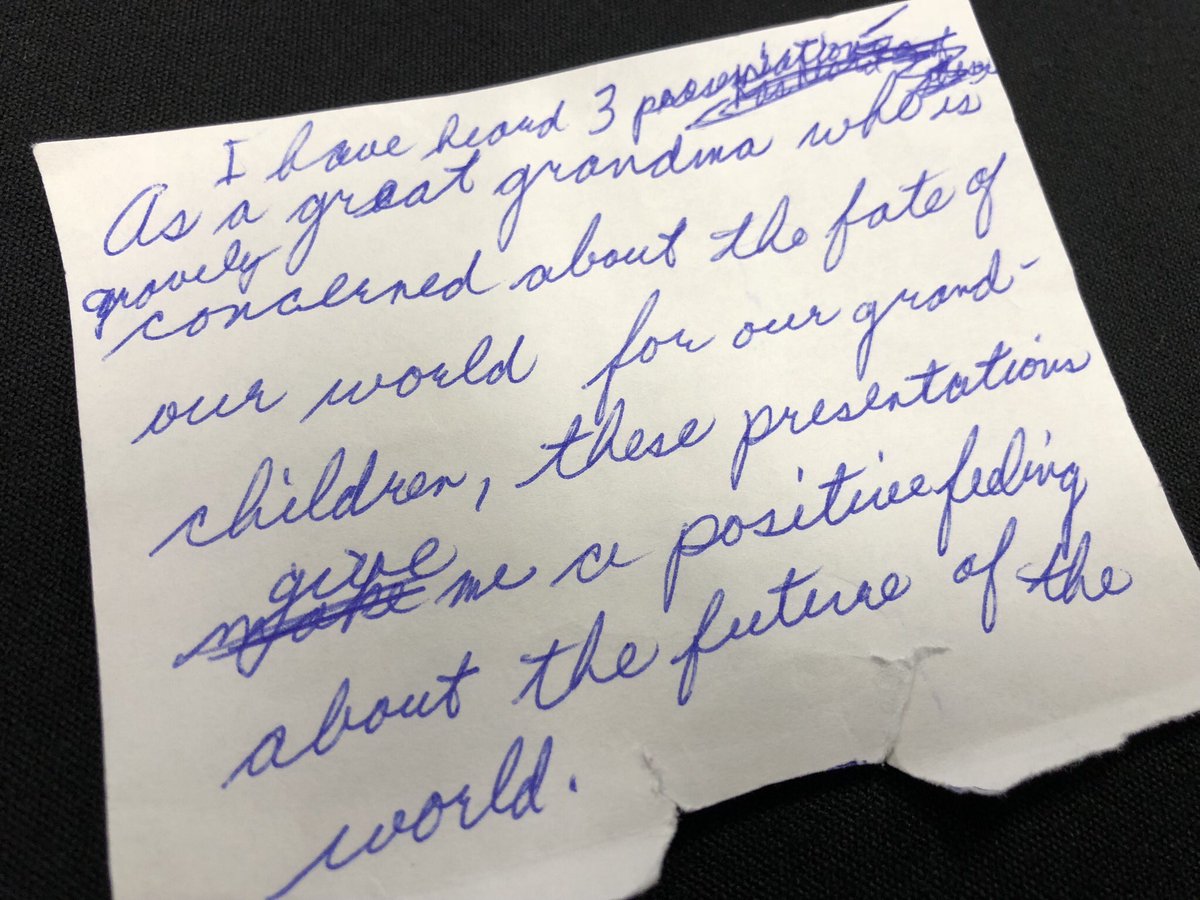 I have heard 3 presentations
As a great grandma who is
gravely
concerned about the fate of
our world for our grand-
children, these presentations
give
make me a positive feeling
about the future of the
world.